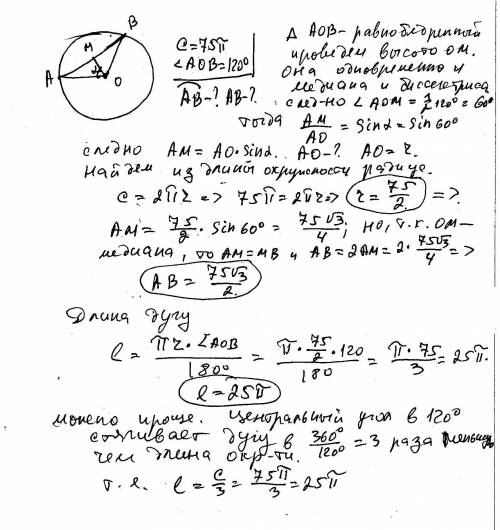 B
M
A
α
O
C = 75π
∠AOB = 120°
AB - ? AB - ?
Δ AOB - равнобедренный
проведем высоту OM.
Она одновременно и
медиана и биссектриса
след-но ∠AOM = ½ 120° = 60°
тогда AM/AO = Sinα = Sin 60°
следно AM = AO · Sinα. AO - ? AO = r.
Найдем из длины окружности радиус.
C = 2πr => 75π = 2πr => r = 75/2 => ?
AM = 75/2 · Sin 60° = 75√3/4; но, т.к. OM -
медиана, то AM = MB и AB = 2AM = 2 · 75√3/4 =>
AB = 75√3/2.
Длина дугу
l = πr · ∠AOB/180° = π · 75/2 · 120/180 = π · 75/3 = 25π.
l = 25π
можно проще. Центральный угол в 120°
стягивает дугу в 360°/120° = 3 раза меньшую
чем длина окр-ти.
т.е. l = C/3 = 75π/3 = 25π